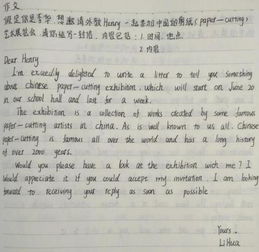 作文
假定你是李华,想邀请外教Henry一起参观中国的剪纸(paper-cutting)
艺术展览会,请你给写一封信,内容包括:1.时间、地点
2.内容
Dear Henry
I'm exceedly delighted to write a letter to tell you something
about chinese paper-cutting exhibition, which will start on June 20
in our school hall and last for a week.
The exhibition is a collection of works created by some famous
paper-cutting artists in china. As is well known to us all, Chinese
paper-cutting is famous all over the world and has a long history
of over 2000 years.
Would you please have a look at the exhibition with me? I
would appreciate it if you could accept my invitation. I am looking
forward to receiving your reply as soon as possible
Yours,
Li Hua